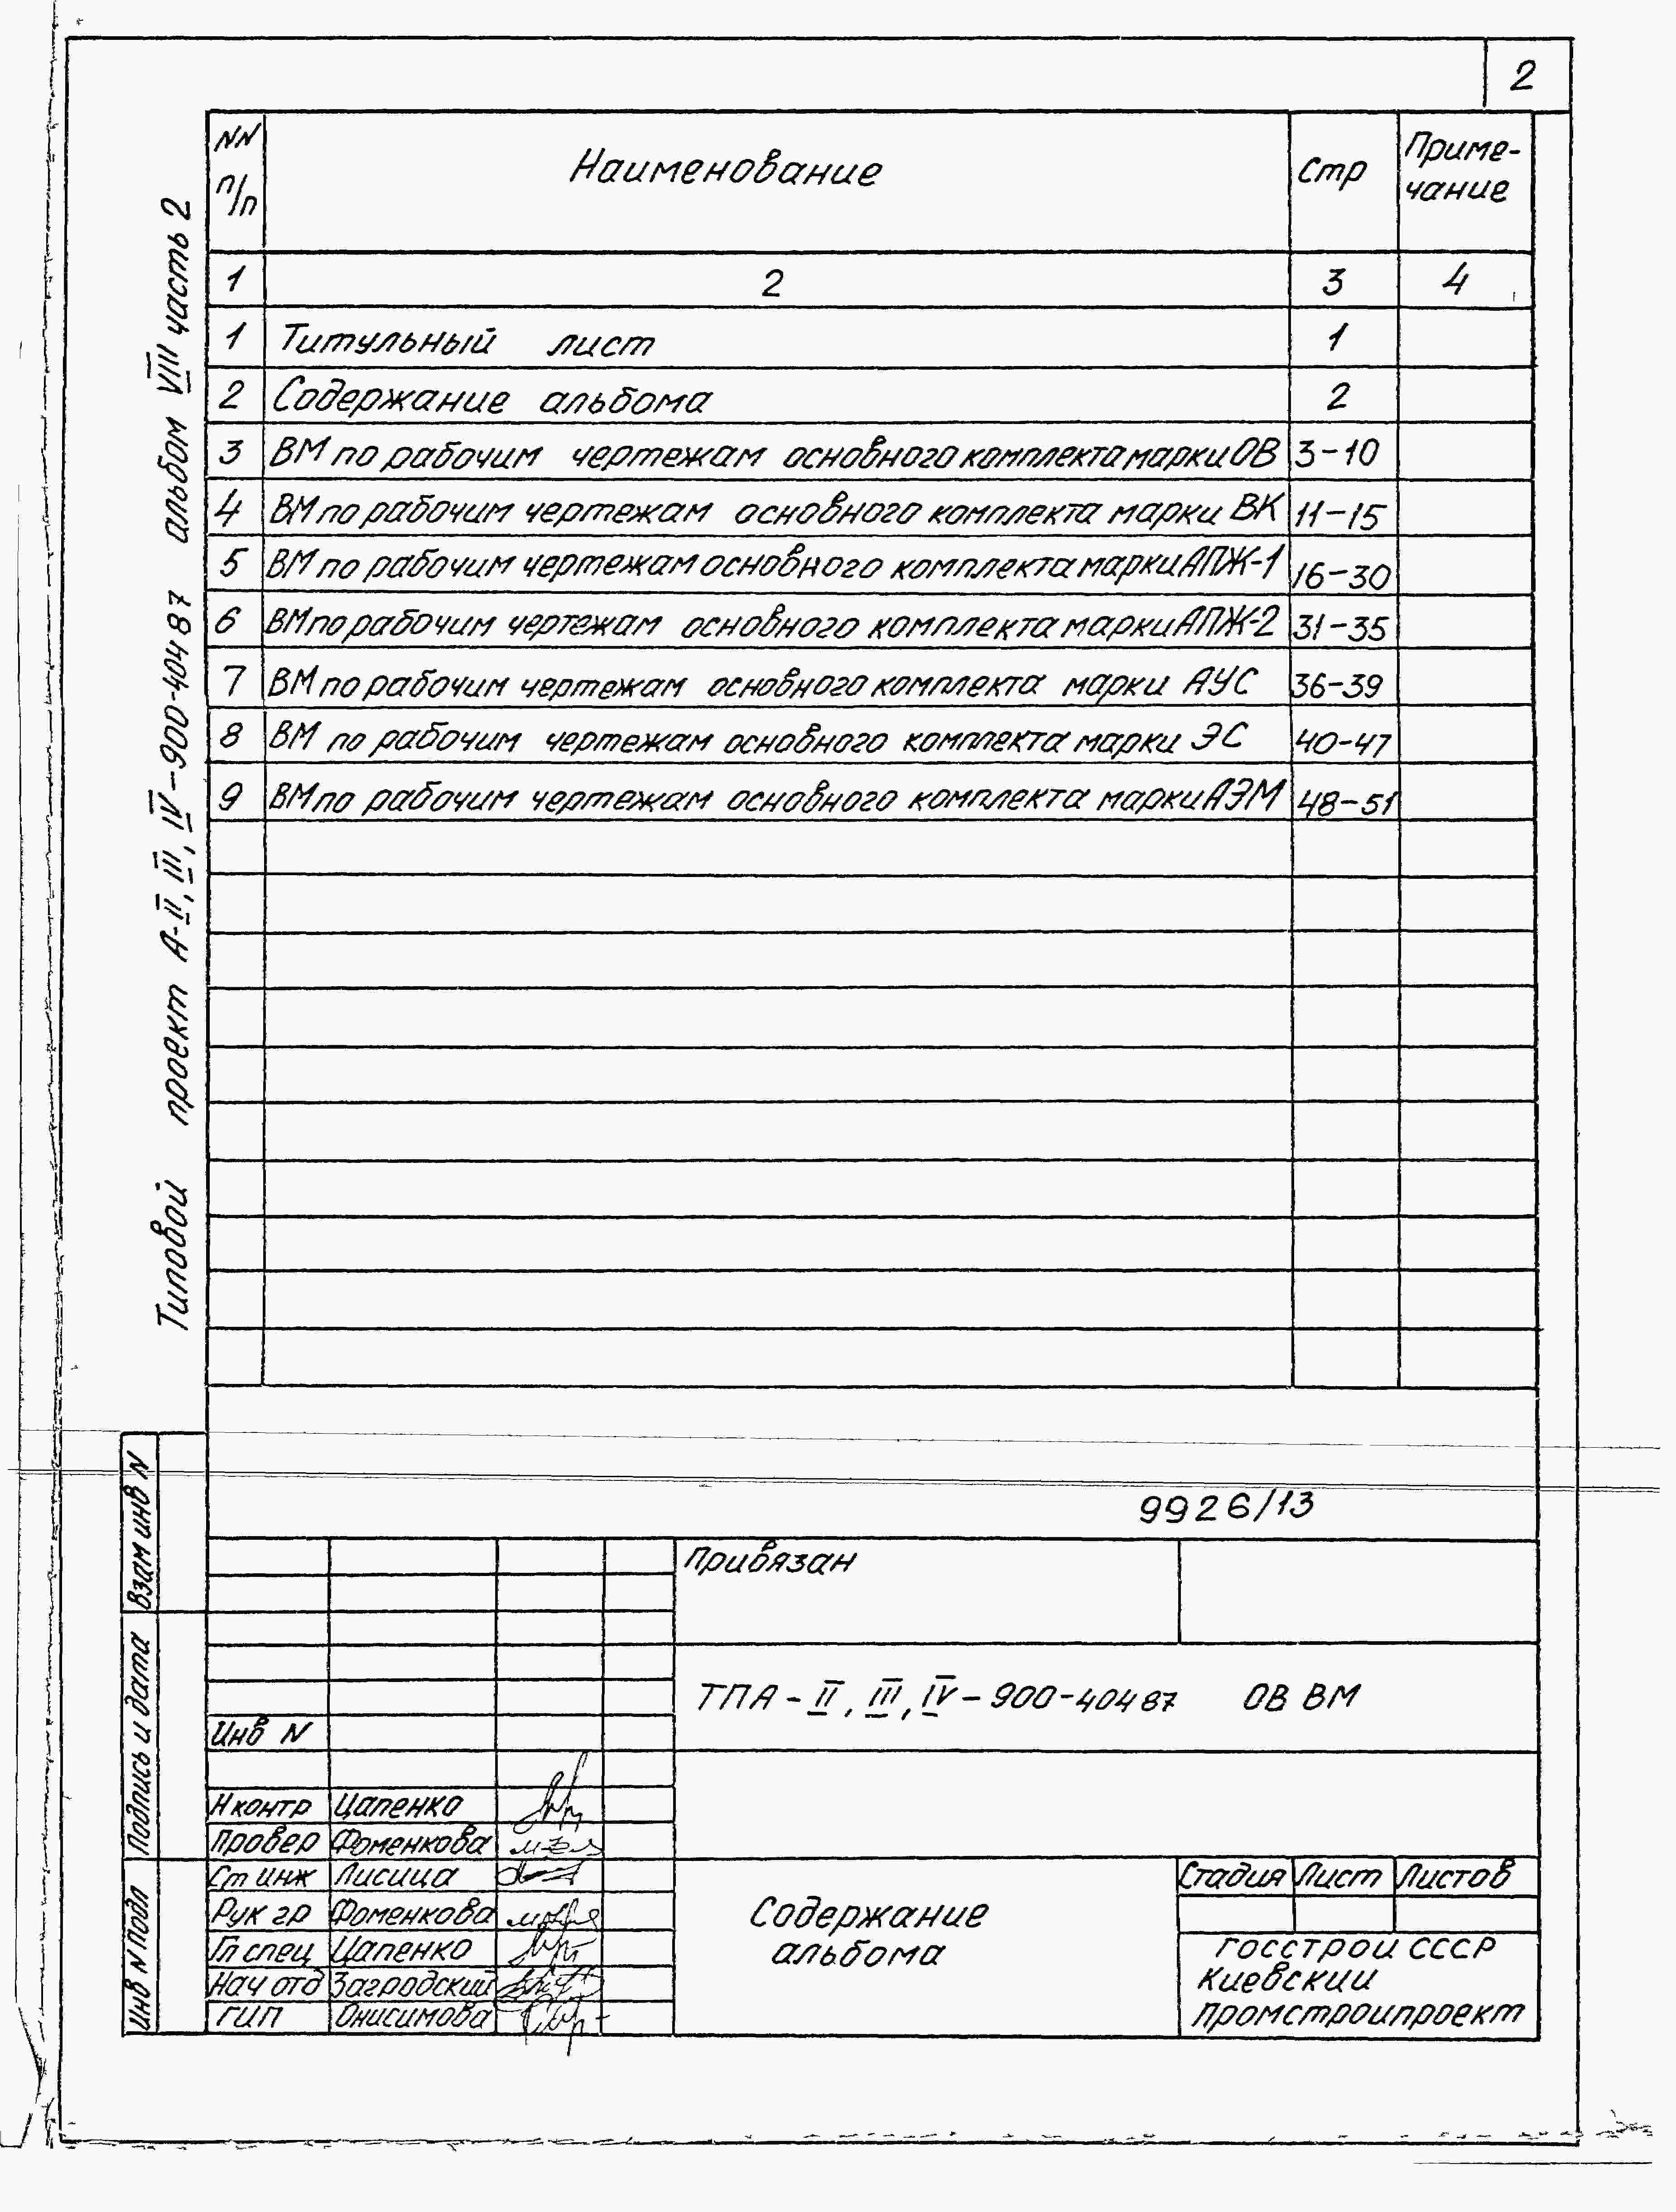 2
NN п/п Наименование Стр Приме-чание
1 2 3 4
1 Титульный лист 1
2 Содержание альбома 2
3 ВМ по рабочим чертежам основного комплекта марки ОВ 3-10
4 ВМ по рабочим чертежам основного комплекта марки ВК 11-15
5 ВМ по рабочим чертежам основного комплекта марки АПЖ-1 16-30
6 ВМ по рабочим чертежам основного комплекта марки АПЖ-2 31-35
7 ВМ по рабочим чертежам основного комплекта марки АУС 36-39
8 ВМ по рабочим чертежам основного комплекта марки ЭС 40-47
9 ВМ по рабочим чертежам основного комплекта марки АЭМ 48-51
Типовой проект А-II, III, IV-900-404 87 альбом VIII часть 2
9926/13
Привязан
ТПА-II, III, IV-900-404 87 ОВ ВМ
Инв N
Н контр Цапенко
Провер Фоменкова
Ст инж Лисица
Рук гр Фоменкова
Гл спец Цапенко
Нач отд Загродский
ГИП Онисимова
Содержание
альбома
Стадия Лист Листов
Госстрои СССР
Киевскии
Промстроипроект
Взам инв N
Подпись и дата
Инв N подл